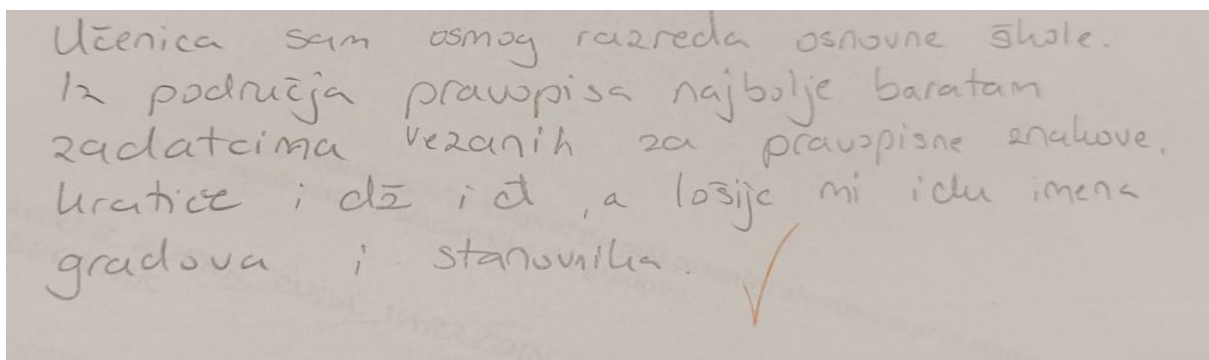 Učenica sam osmog razreda osnovne škole.
Iz područja pravopisa najbolje baratam
zadatcima vezanih za pravopisne znakove,
kratice i dž i đ, a lošije mi idu imena
gradova i stanovnika.